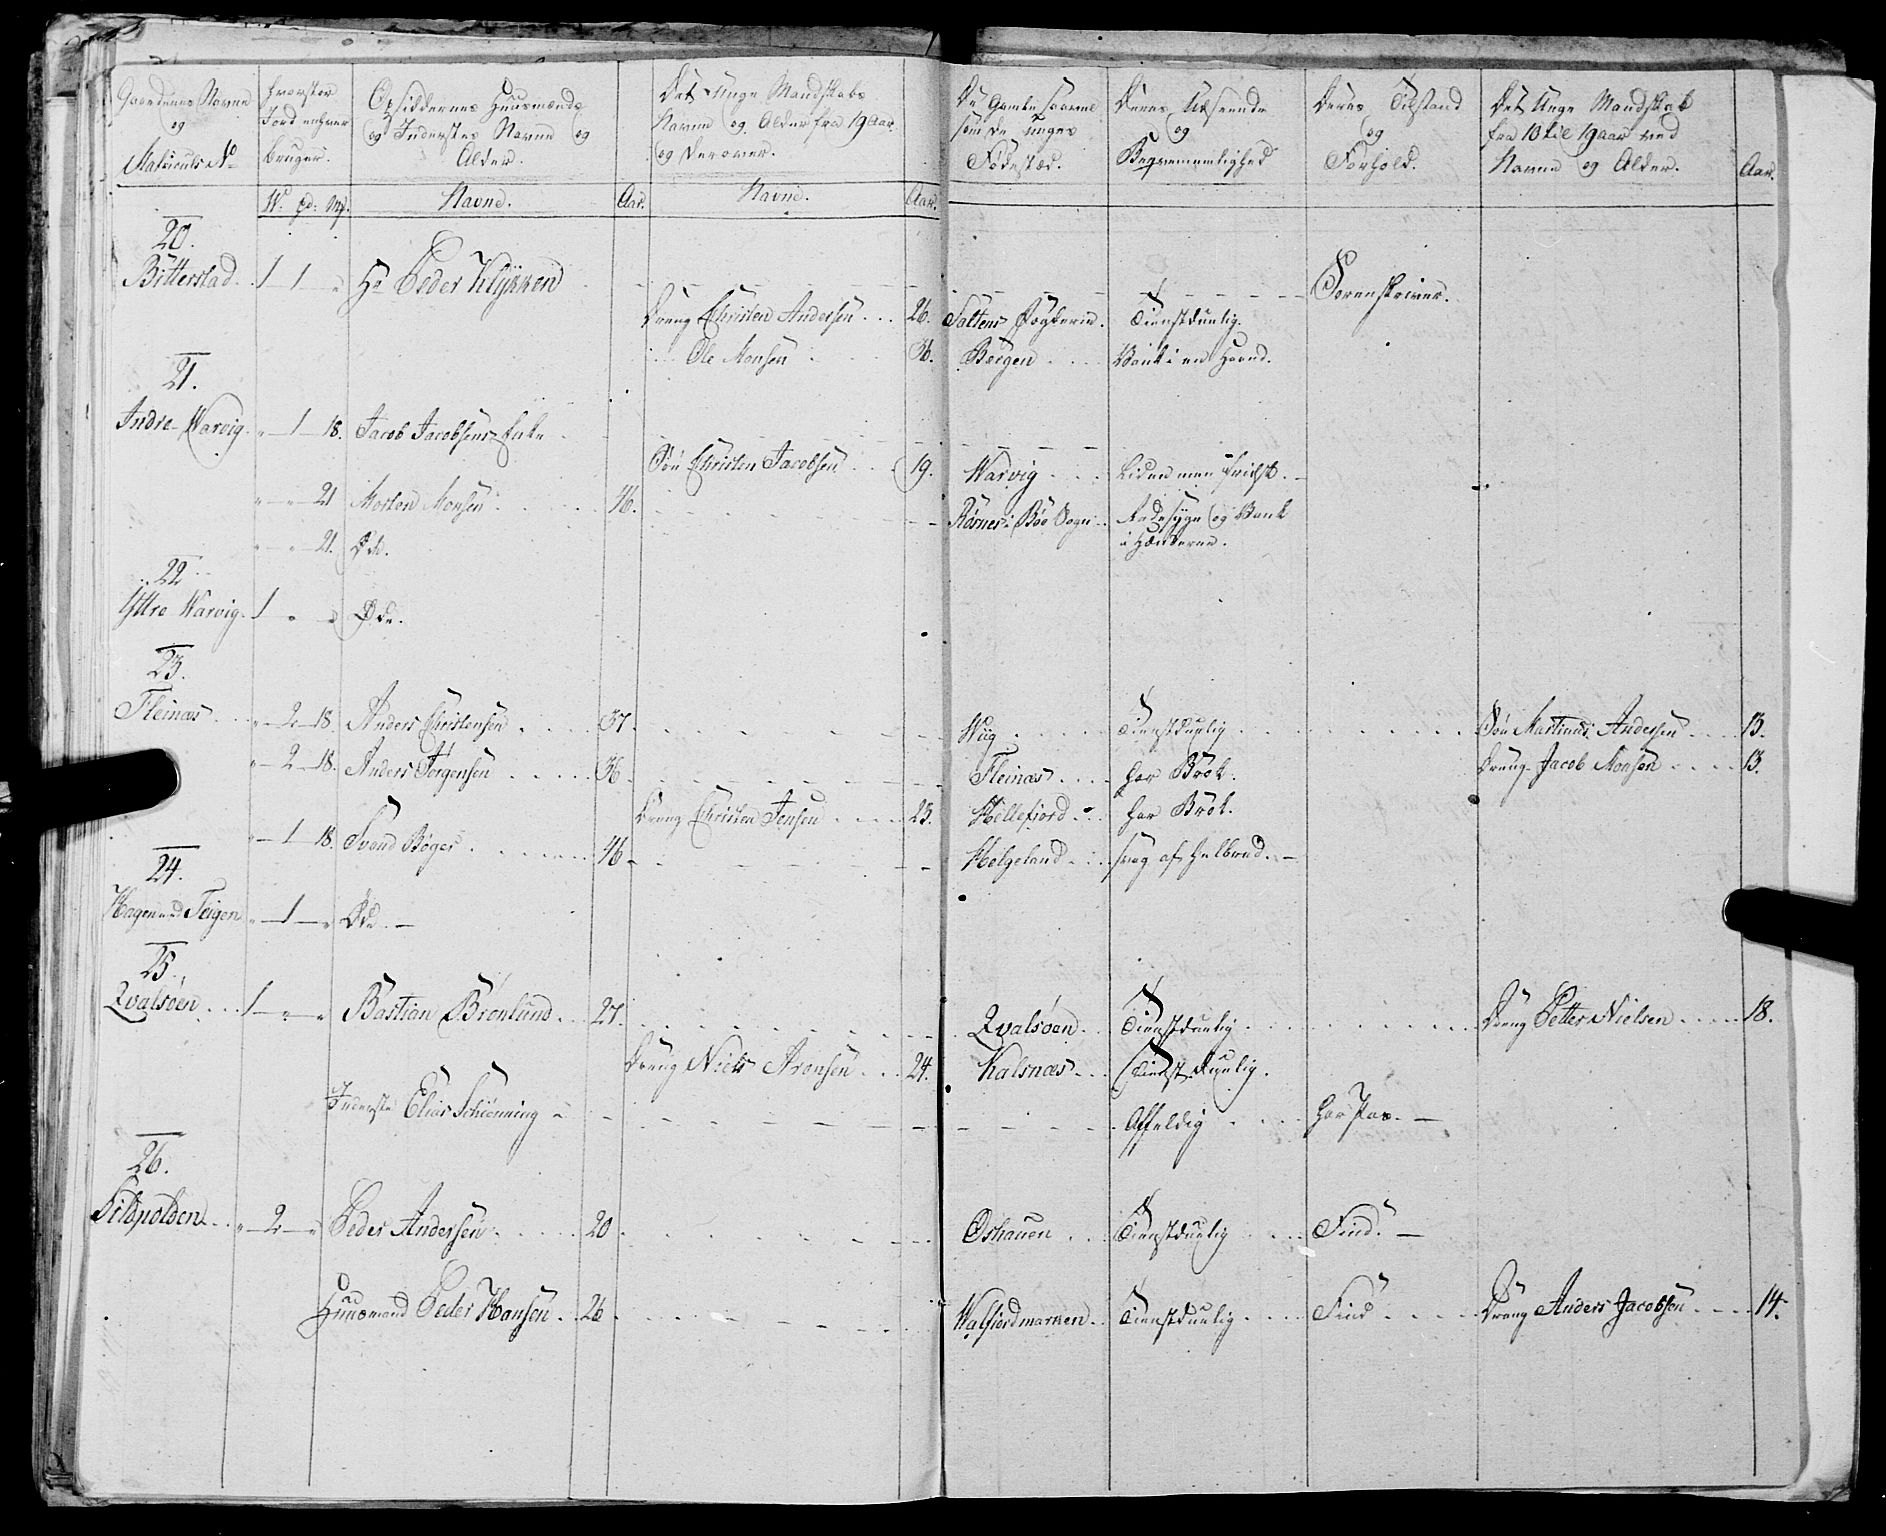 Gaardenes Navne og Matriculs No
hvorstor Jord enhver bruger.
Opsiddernes Huusmænds og Inderstes Navne og Alder.
Det Unge Mandskabs Navne og Alder fra 19 Aar og derover.
De Gamle saavel som de unges Fødestæd.
Deres Udseende og Beqvemmelighed
Deres Tilstand og Forhold.
Det Unge Mandskab fra 10 til 19 aar ved Navne og Alder.
Aar.
W. pd: Mk. Navne. Aar. Navne. Aar.
20.
Bitterstad 1 1 " Hr Peder Klykken Sorenskriver.
Dreng Christen Andersen 26. Saltens Fogderie. Tienstdunlig.
Ole Monsen 36. Bergen Vank i en Haand.
21.
Indre Warvig " 1 18. Jacob Jacobsens Enke
Søn Christen Jacobsen 19. Warvig Liden men friskt.
" " 21 Morten Monsen 46. i Bøe Sogn Radesyge og Vank
i Hænderne.
" " 21. Øde.
22
Yttre Warvig 1 " " Øde.
23.
Fleinæs " 2 18 Anders Christensen 37. Wiig Tienstdygtig Søn Martinus Andersen 13.
" 2 18. Anders Jørgensen 36. Fleinæs har Brok. Dreng Jacob Monsen 13.
Dreng Christen Jensen 23. Hellefiord har Brok.
" 1 18. Svend Bøger 46 Helgeland svag af Helbred.
24.
Hagen ved Teigen " 1 " Øde.
25.
Qvalsøen 1 " " Bastian Brønlund 27. Qvalsøen Tienstdygtig Dreng Petter Nielsen 18.
Dreng Niels Aronsen 24. Kalsnæs Tienstdygtig.
Inderste Elias Schiønning Affeldig har Pas.
26.
Sildpolden " 2 " Peder Andersen 20 Oshauen Tienstdygtig Find.
Huusmand Peder Hansen 26 Walfiordmarken Tienstdygtig Find Dreng Anders Jacobsen 14.